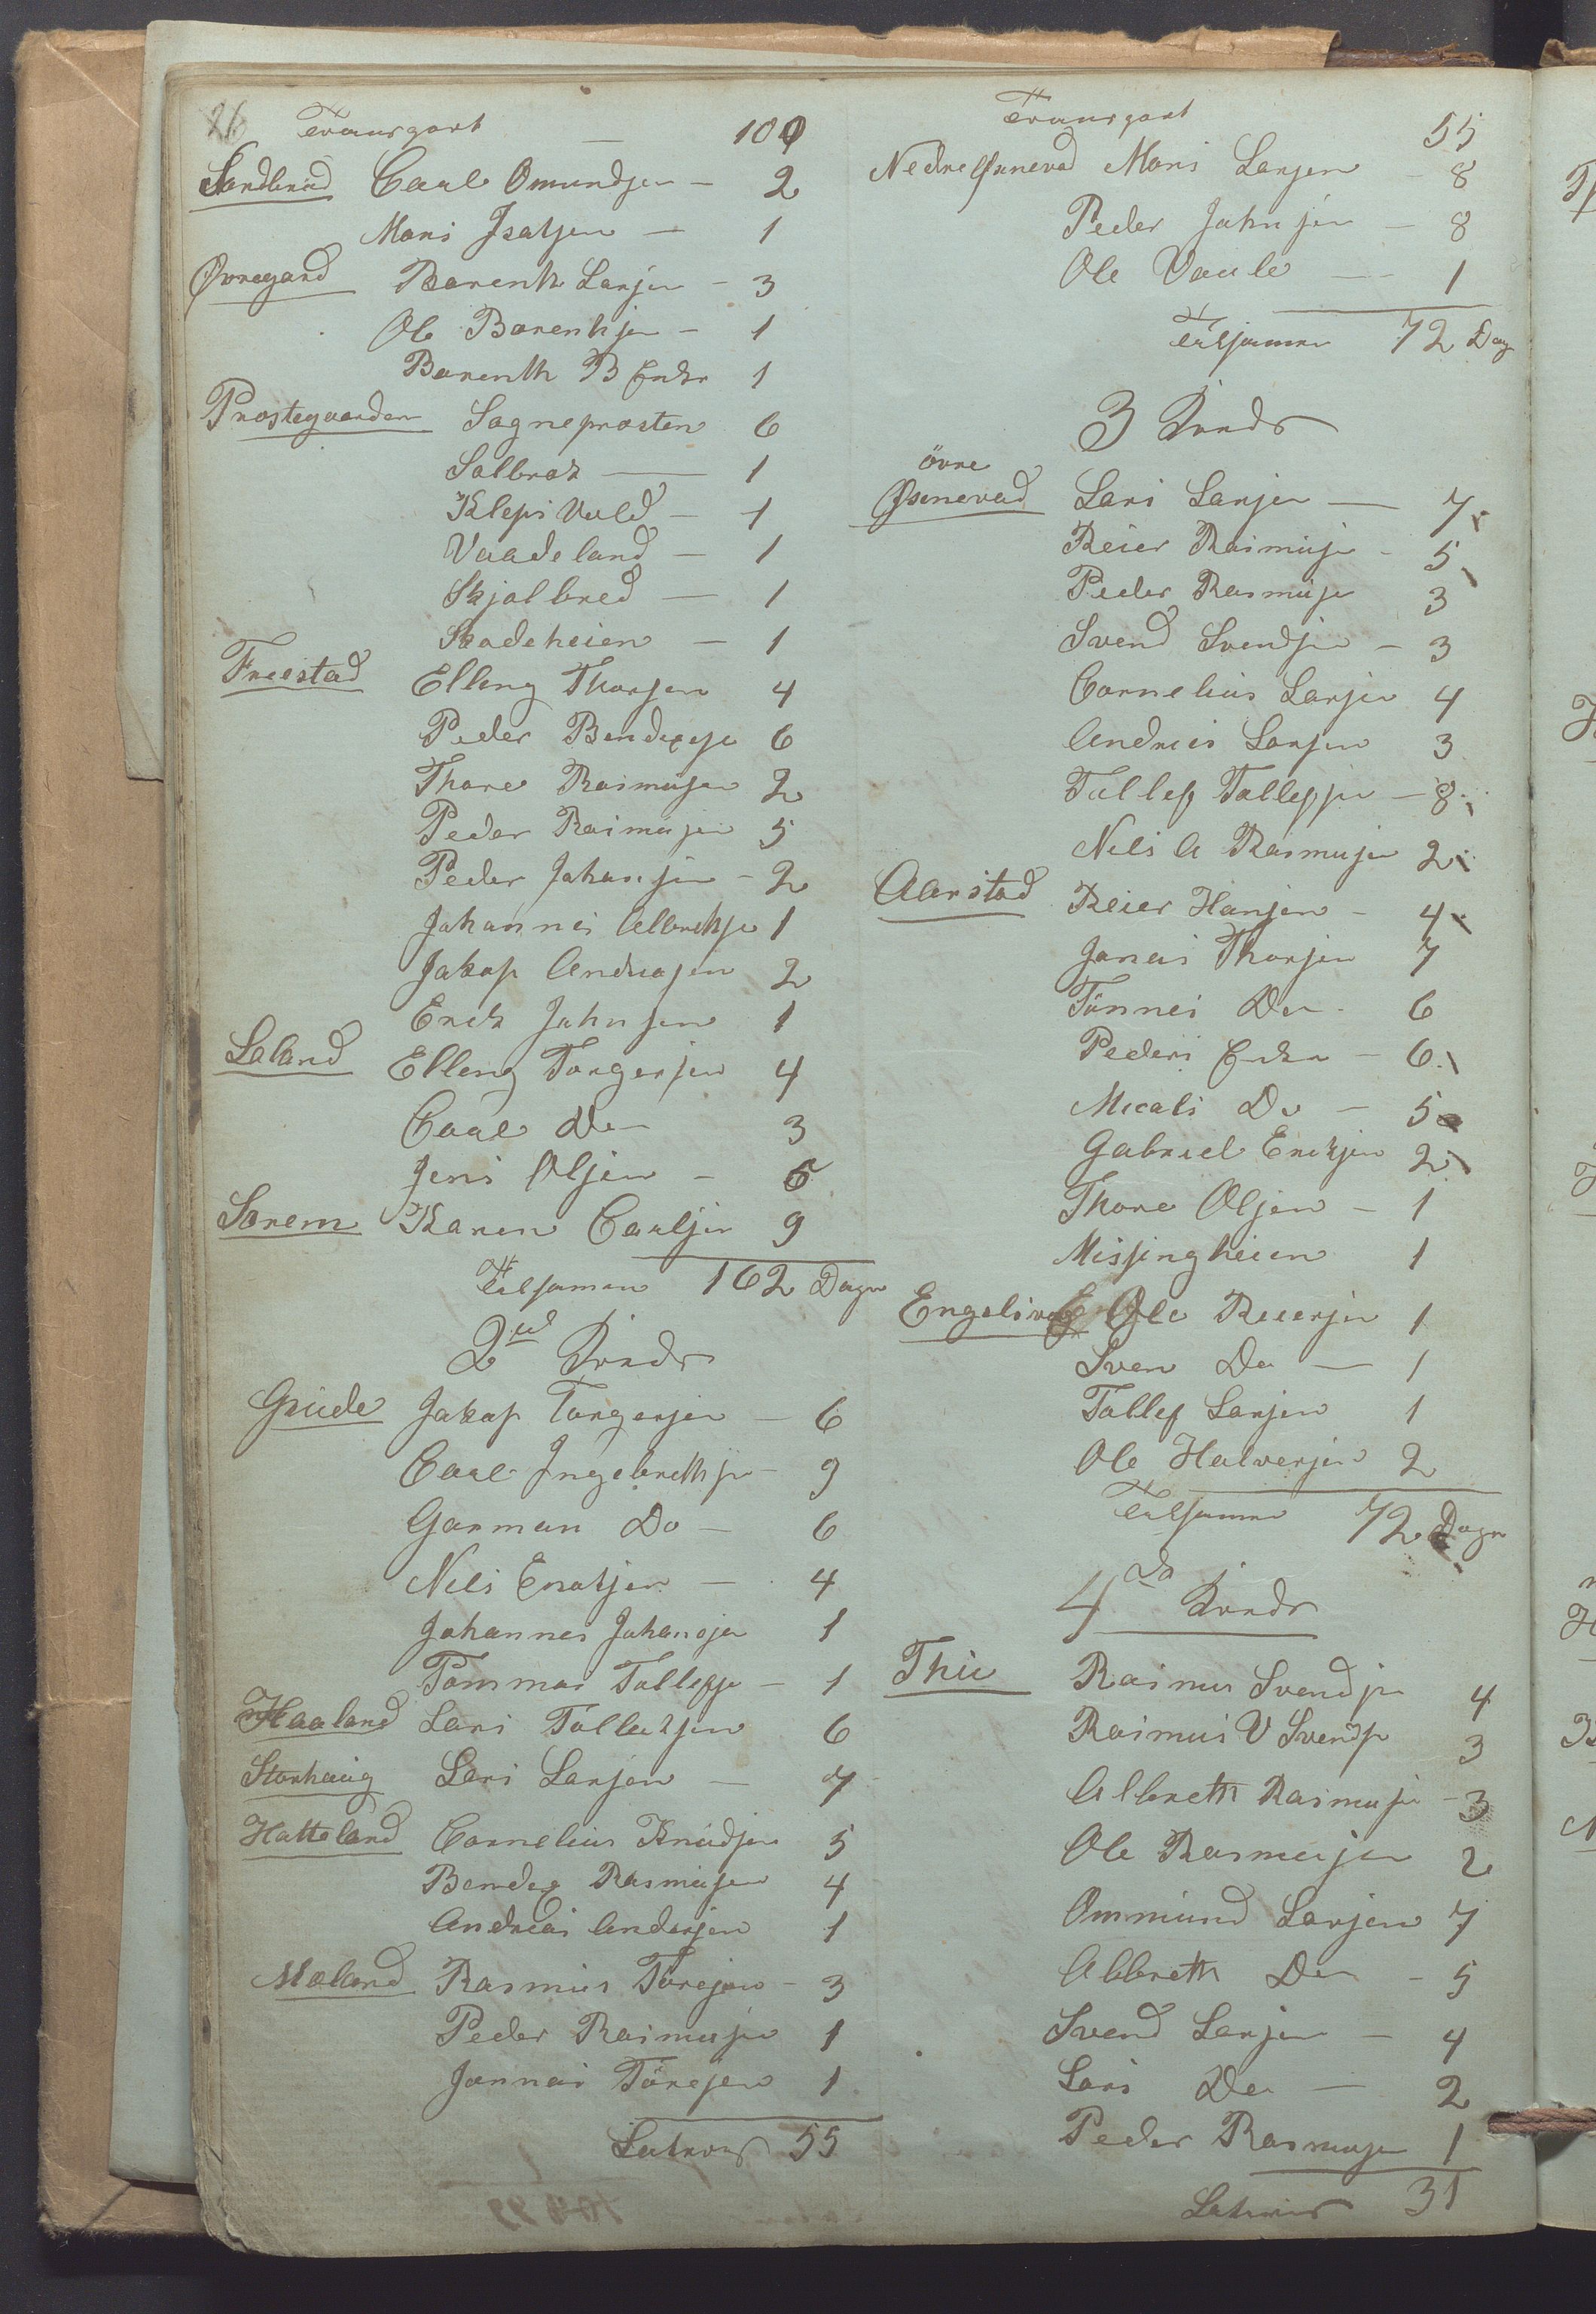 26 Transport — 100
Sandbrüd Carl Omundsen — 2
Mons Isaksen — 1
Øvregard Barenth Larsen — 3
Ole Barenthsen — 1
Barenth B Enke 1
Prostegaarden Sogneprosten 6
Solbrek — 1
Kleps Vold — 1
Vaadeland — 1
Skjolbred — 1
Skadeheien — 1
Freestad Elling Thorsen 4
Peder Bendixse 6
Thore Rasmusen 2
Peder Rasmusen 5
Peder Johansen — 2
Johannes Albrethse 1
Jakop Andreasen 2
Erik Johnsen 1
Laland Elling Torgersen 4
Carl Do 3
Jens Olsen — 6
Sørem Karen Carlsen 9
Tilsamen 162 Dage
2ed Rode
Grude Jakop Torgersen — 6
Carl Ingebrethse — 9
Garman Do — 6
Nils Eraksen — 4
Johannes Johansen 1
Tommas Tollefse — 1
Haaland Lars Tollaksen 6
Storhaug Lars Larsen — 7
Hatteland Cornelius Knudsen 5
Bendix Rasmusen 4
Andreas Andersen 1
Mæland Rasmus Toresen — 3
Peder Rasmusen 1
Jonnas Toresen 1
Latrus 55
Transport 55
Nedre Øxnevad Mons Larsen — 8
Peder Johnsen — 8
Ole Vaule — 1
Tilsamen 72 Dag
3 Rode
övre
Øxnevad Lars Larsen — 7
Reier Rasmuse — 5
Peder Rasmuse 3
Svend Svendse — 3
Cornelius Larsen 4
Andreas Larsen 3
Tollef Tollefsen — 8
Nils A Rasmusen 2
Aarstad Reier Hansen — 4
Jonas Thorsen 7
Tönnes Do 6
Peders Enke — 6
Micals Do — 5
Gabriel Eriksen 2
Thore Olsen — 1
Missingheien 1
Engelsvog Ole Reiersen 1
Sven Do — 1
Tollef Larsen 1
Ole Halversen 2
Tilsamen 72 Dage
4de Rode
Thu Rasmus Svendse 4
Rasmus V Svendse 3
Albreth Rasmuse — 3
Ole Rasmusen 2
Ommund Larsen 7
Albreth Do — 5
Svend Larsen — 4
Lars Do — 2
Peder Rasmuse 1
Latrus 31